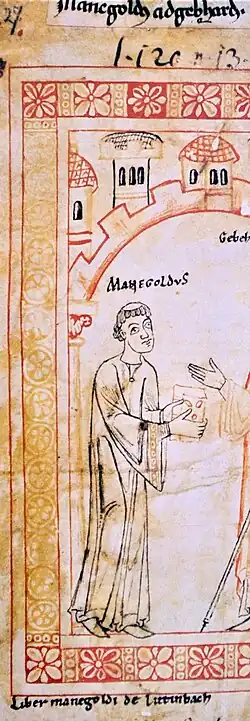 27
Manegold9 ad gebhard.
I · 120 n · 13
Gebeh
MANEGOLDVS
Liber manegoldi de lutinbach